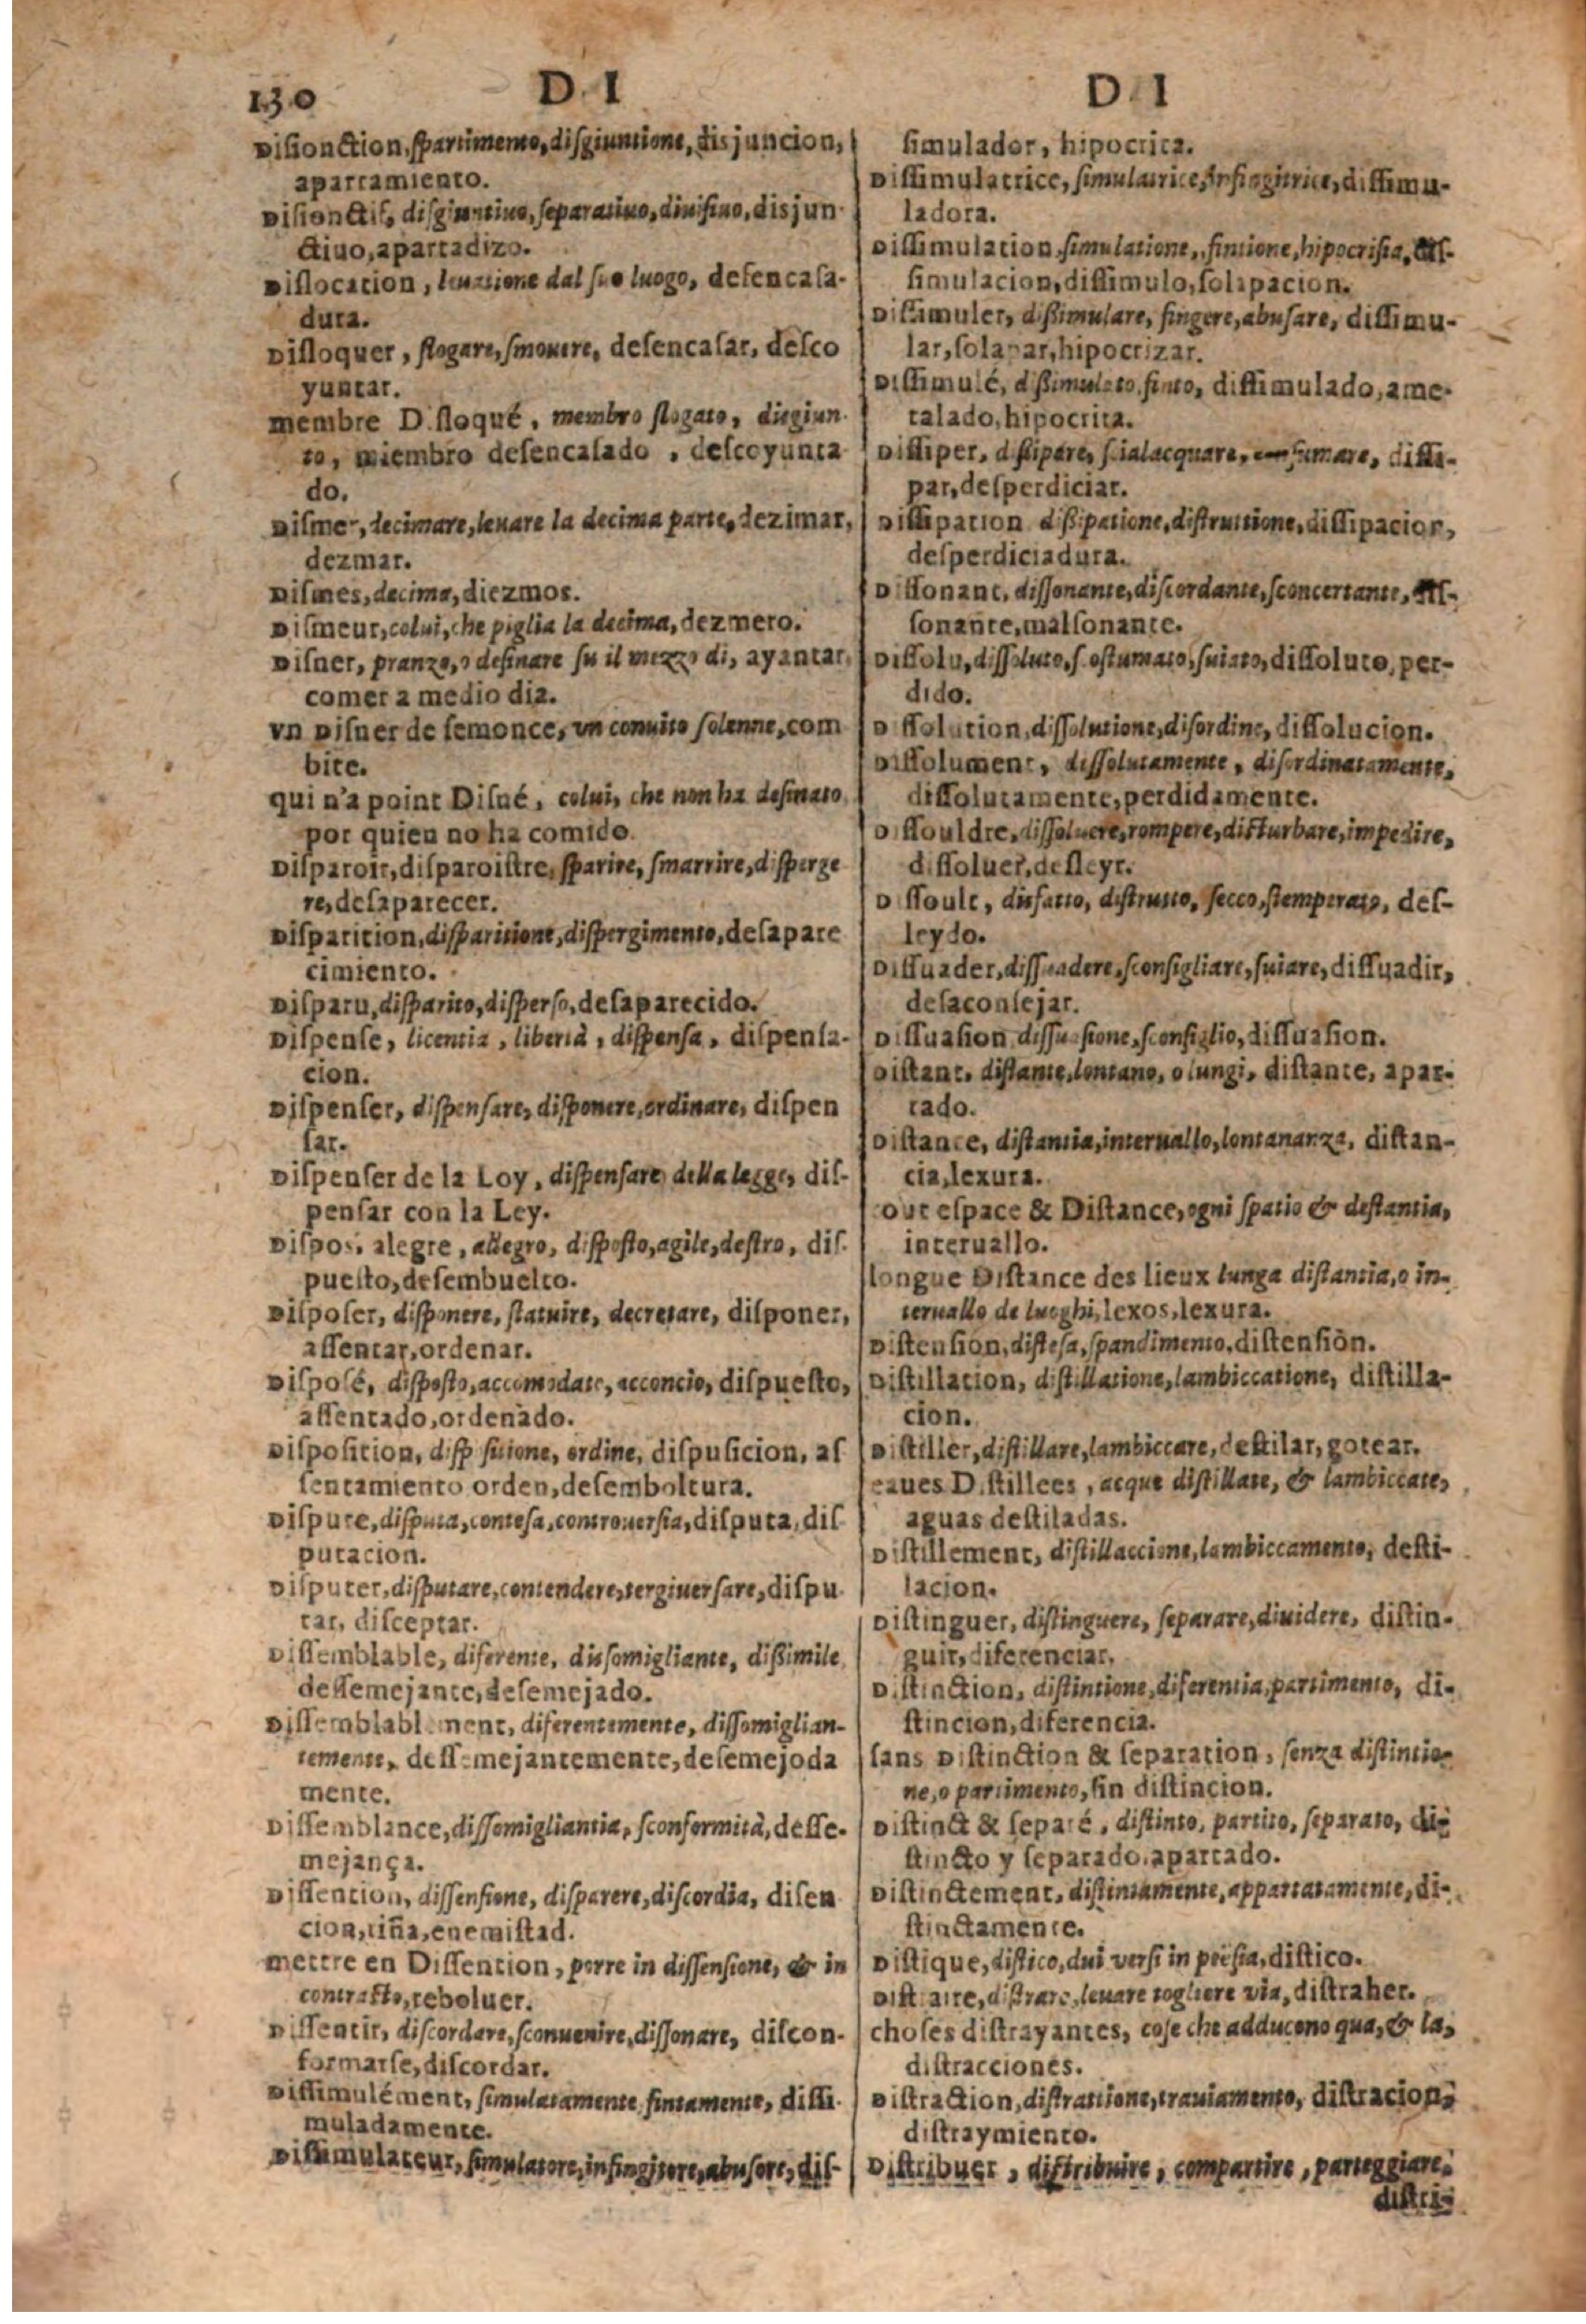 130
D I
Disionction, spartimento, disgiuntione, disjuncion,
apartamiento.
Disionctif, disgiuntiuo, separatiuo, diuisiuo, disjun-
ctiuo, apartadizo.
Dislocation, leuatione dal suo luogo, desencasa-
dura.
Disloquer, slogare, smouere, desencasar, desco
yuntar.
membre Disloqué, membro slogato, disgiun-
to, miembro desencasado, descoyunta
do.
Dismer, decimare, leuare la decima parte, dezimar,
dezmar.
Dismes, decima, diezmos.
Dismeur, colui, che piglia la decima, dezmero.
Disner, pranzo, o desinare su il mezzo di, ayantar,
comer a medio dia.
vn Disner de semonce, vn conuito solenne, com
bite.
qui n'a point Disné, colui, che non ha desinato
por quien no ha comido.
Disparoir, disparoistre, sparire, smarrire, disperge
re, desaparecer.
Disparition, disparitione, dispergimento, desapare
cimiento.
Disparu, disparito, disperso, desaparecido.
Dispense, licentia, libertà, dispensa, dispensa-
cion.
Dispenser, dispensare, disponere, ordinare, dispen
sar.
Dispenser de la Loy, dispensare della legge, dis-
pensar con la Ley.
Dispos, alegre, allegro, disposto, agile, destro, dis-
puesto, desembuelto.
Disposer, disponere, statuire, decretare, disponer,
assentar, ordenar.
Disposé, disposto, accomodato, acconcio, dispuesto,
assentado, ordenado.
Disposition, dispositione, ordine, dispusicion, as
sentamiento orden, desemboltura.
Dispute, disputa, contesa, controuersia, disputa, dis
putacion.
Disputer, disputare, contendere, tergiuersare, dispu
tar, disceptar.
Dissemblable, diferente, dissomigliante, dissimile,
dessemejante, desemejado.
Dissemblablement, diferentemente, dissomiglian-
temente, dessemejantemente, desemejoda
mente.
Dissemblance, dissomigliantia, sconformità, desse-
mejança.
Dissention, dissensione, disparere, discordia, disen
cion, riña, enemistad.
mettre en Dissention, porre in dissensione, & in
contrasto, reboluer.
Dissentir, discordare, sconuenire, dissonare, discon-
formarse, discordar.
Dissimulément, simulatamente, fintamente, dissi-
muladamente.
Dissimulateur, simulatore, infingitore, abusore, dis-
D I
simulador, hipocrita.
Dissimulatrice, simulatrice, infingitrice, dissimu-
ladora.
Dissimulation, simulatione, fintione, hipocrisia, dis-
simulacion, dissimulo, solapacion.
Dissimuler, dissimulare, fingere, abusare, dissimu-
lar, solapar, hipocrizar.
Dissimulé, dissimulato, finto, dissimulado, ame-
talado, hipocrita.
Dissiper, dissipare, scialacquare, consumare, dissi-
par, desperdiciar.
Dissipation, dissipatione, distruttione, dissipacion,
desperdiciadura.
Dissonant, dissonante, discordante, sconcertante, dis-
sonante, malsonante.
Dissolu, dissoluto, scostumato, suiato, dissoluto, per-
dido.
Dissolution, dissolutione, disordine, dissolucion.
Dissolument, dissolutamente, disordinatamente,
dissolutamente, perdidamente.
Dissouldre, dissoluere, rompere, disturbare, impedire,
dissoluer, desleyr.
Dissoult, disfatto, distrutto, secco, stemperato, des-
leydo.
Dissuader, dissuadere, sconsigliare, suiare, dissuadir,
desaconsejar.
Dissuasion, dissuasione, sconsiglio, dissuasion.
Distant, distante, lontano, o lungi, distante, apar-
tado.
Distance, distantia, interuallo, lontananza, distan-
cia, lexura.
tout espace & Distance, ogni spatio & destantia,
interuallo.
longue Distance des lieux lunga distantia, o in-
teruallo de luoghi, lexos, lexura.
Distension, distesa, spandimento, distension.
Distillation, distillatione, lambiccatione, distilla-
cion.
Distiller, distillare, lambiccare, destilar, gotear.
eaues Distillees, acque distillate, & lambiccate,
aguas destiladas.
Distillement, distillaccione, lambiccamento, desti-
lacion.
Distinguer, distinguere, separare, diuidere, distin-
guir, diferenciar.
Distinction, distintione, diferentia, partimento, di-
stincion, diferencia.
sans Distinction & separation, senza distintio-
ne, o partimento, sin distincion.
Distinct & separé, distinto, partito, separato, di-
stincto y separado, apartado.
Distinctement, distintamente, appartatamente, di-
stinctamente.
Distique, distico, dui versi in poesia, distico.
Distraire, distrare, leuare togliere via, distraher.
choses distrayantes, cose che adducono qua, & la,
distracciones.
Distraction, distrattione, trauiamento, distracion,
distraymiento.
Distribuer, distribuire, compartire, parteggiare,
distri-